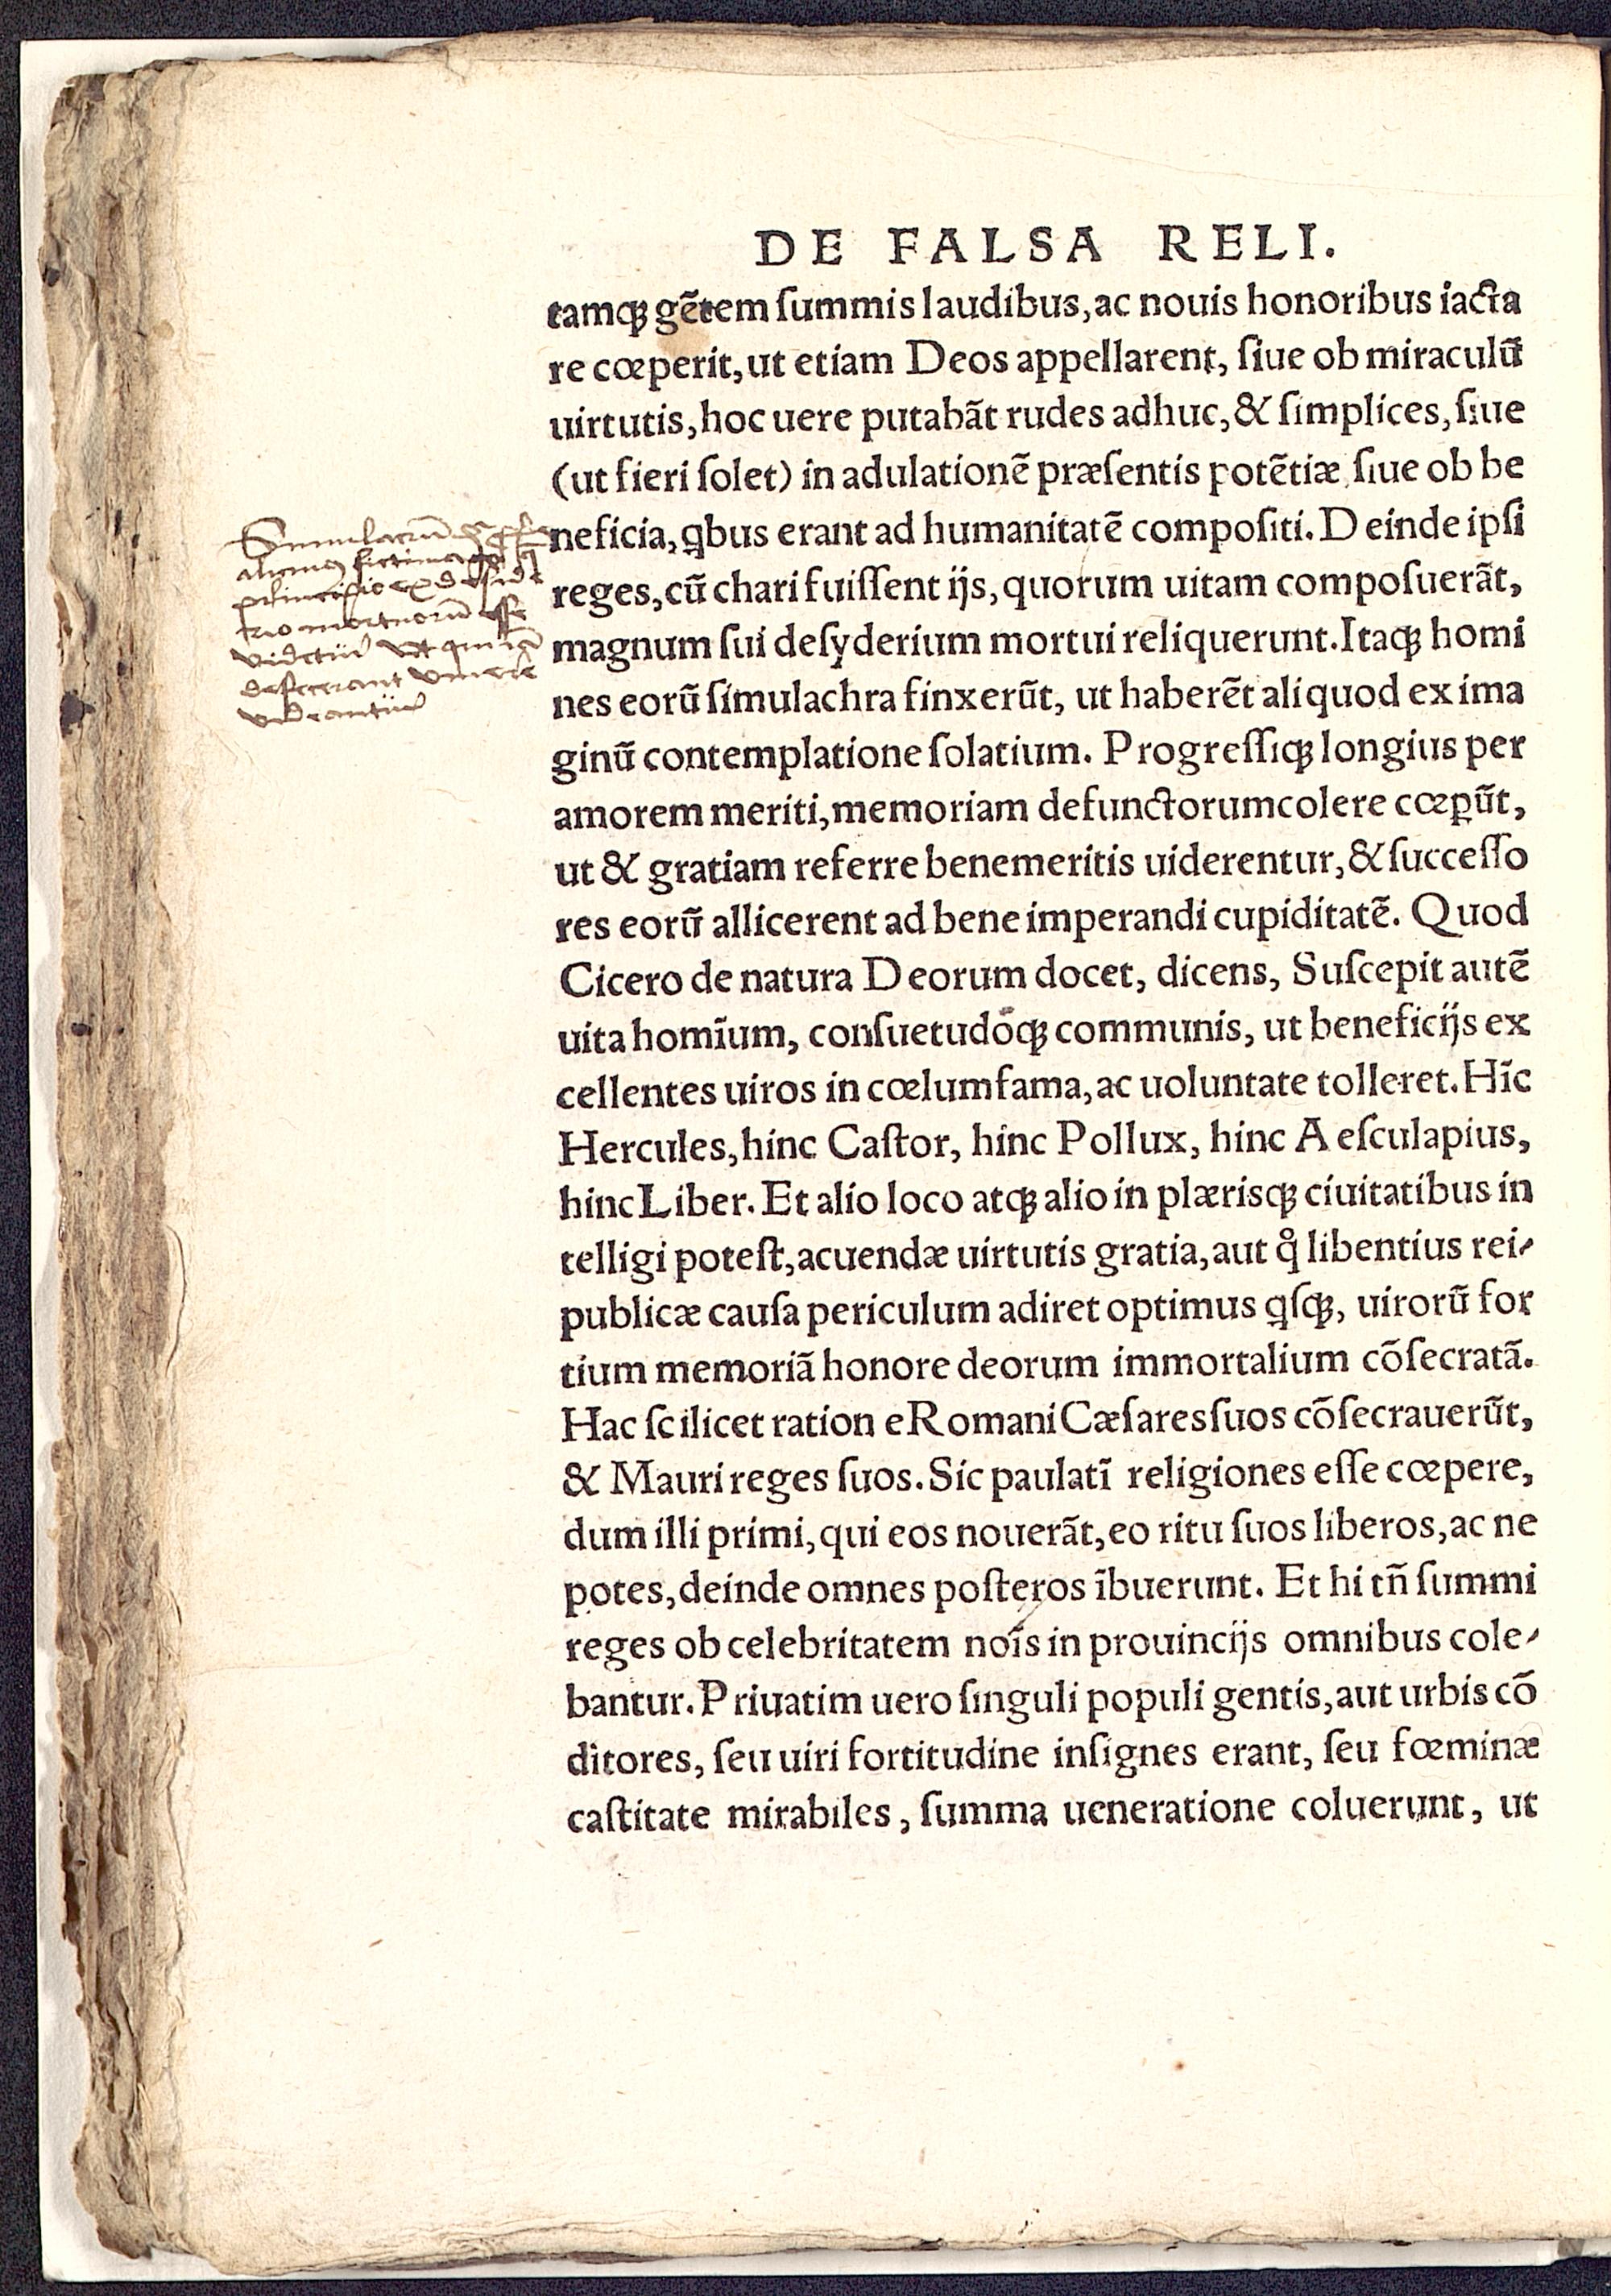 DE FALSA RELI.
tamqꝫ gẽtem ſummis laudibus, ac nouis honoribus iacta
re cœperit, ut etiam Deos appellarent, ſiue ob miraculũ
uirtutis, hoc uere putabãt rudes adhuc, & ſimplices, ſiue
(ut fieri ſolet) in adulationẽ præſentis potẽtiæ, ſiue ob be
neficia, ꝗbus erant ad humanitatẽ compoſiti. Deinde ipſi
reges, cũ chari fuiſſent ijs, quorum uitam compoſuerãt,
magnum ſui deſyderium mortui reliquerunt. Itaqꝫ homi
nes eorũ ſimulachra finxerũt, ut haberẽt aliquod ex ima
ginũ contemplatione ſolatium. Progreſſiqꝫ longius per
amorem meriti, memoriam defunctorum colere cœꝑũt,
ut & gratiam referre benemeritis uiderentur, & ſucceſſo
res eorũ allicerent ad bene imperandi cupiditatẽ. Quod
Cicero de natura Deorum docet, dicens, Suſcepit autẽ
uita homĩum, conſuetudoqꝫ communis, ut beneficijs ex
cellentes uiros in cœlum fama, ac uoluntate tolleret. Hĩc
Hercules, hinc Caſtor, hinc Pollux, hinc Aeſculapius,
hinc Liber. Et alio loco atqꝫ alio in plæriſqꝫ ciuitatibus in
telligi poteſt, acuendæ uirtutis gratia, aut qͦ libentius rei-
publicæ cauſa periculum adiret optimus ꝗſqꝫ, uirorũ for
tium memoriã honore deorum immortalium cõſecratã.
Hac ſcilicet ratione Romani Cæſares ſuos cõſecrauerũt,
& Mauri reges ſuos. Sic paulatĩ religiones eſſe cœpere,
dum illi primi, qui eos nouerãt, eo ritu ſuos liberos, ac ne
potes, deinde omnes poſteros ĩbuerunt. Et hi tñ ſummi
reges ob celebritatem noĩs in prouincijs omnibus cole-
bantur. Priuatim uero ſinguli populi gentis, aut urbis cõ
ditores, ſeu uiri fortitudine inſignes erant, ſeu fœminæ
caſtitate mirabiles, ſumma ueneratione coluerunt, ut
Simulacrũ
principio ex deside
rio mortuorũ esse
videtur vt qui iã
defecerant viuere
videantur